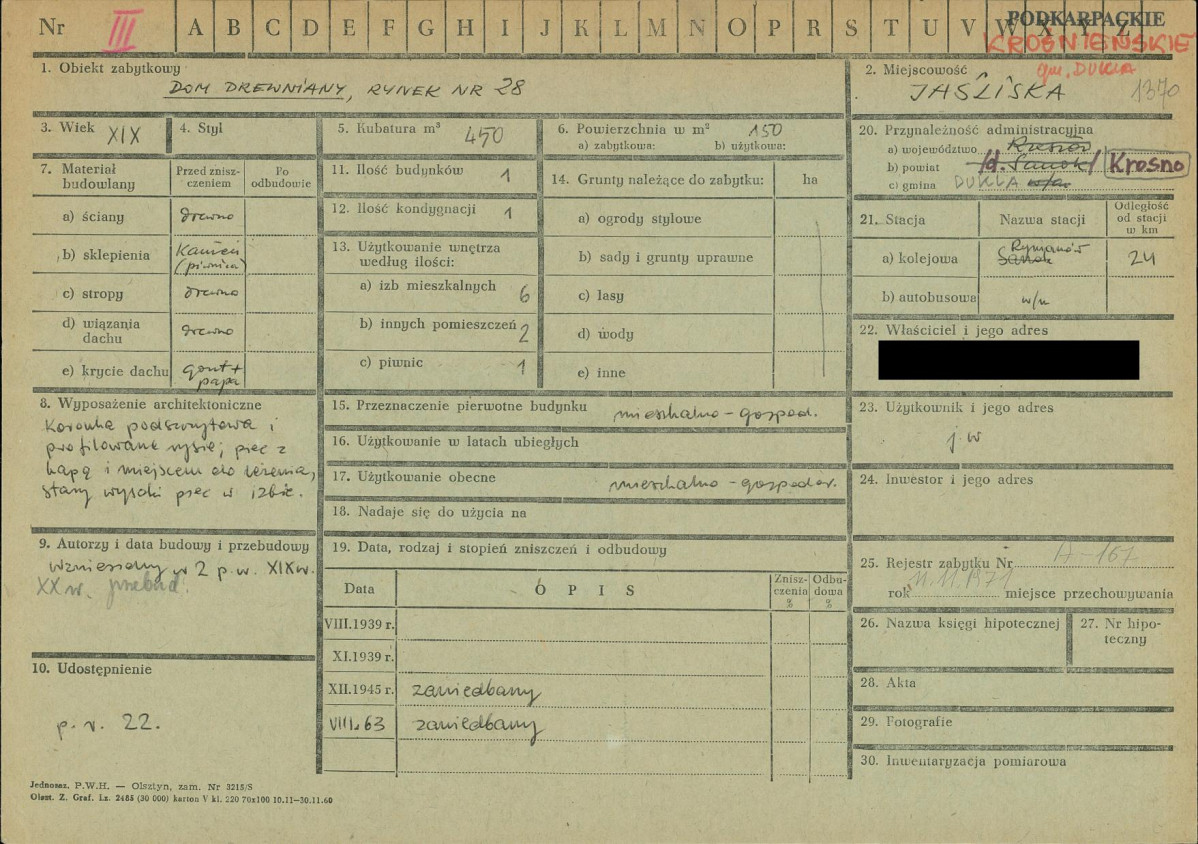 Nr III A B C D E F G H I J K L M N O P R S T U V W X Y Z PODKARPACKIE
KROŚNIEŃSKIE
gm. DUKLA
1. Obiekt zabytkowy
DOM DREWNIANY, RYNEK NR 28
2. Miejscowość
JAŚLISKA 1370
3. Wiek XIX
4. Styl
5. Kubatura m³ 450
6. Powierzchnia w m² 150
a) zabytkowa: b) użytkowa:
7. Materiał budowlany
Przed znisz-
czeniem
Po
odbudowie
a) ściany drewno
b) sklepienia kamień
(piwnica)
c) stropy drewno
d) wiązania
dachu drewno
e) krycie dachu gont +
papa
8. Wyposażenie architektoniczne
Koronka podszczytowa i
profilowane rysie; piec z
kapą i miejscem do leżenia,
stary wysoki piec w izbie.
9. Autorzy i data budowy i przebudowy
wzniesiony w 2 p. w. XIX w.
XX w. przebud.
10. Udostępnienie
p. r. 22.
11. Ilość budynków 1
12. Ilość kondygnacji 1
13. Użytkowanie wnętrza
według ilości:
a) izb mieszkalnych 6
b) innych pomieszczeń 2
c) piwnic 1
14. Grunty należące do zabytku: ha
a) ogrody stylowe
b) sady i grunty uprawne
c) lasy
d) wody
e) inne
15. Przeznaczenie pierwotne budynku mieszkalno-gospod.
16. Użytkowanie w latach ubiegłych
17. Użytkowanie obecne mieszkalno-gospodar.
18. Nadaje się do użycia na
19. Data, rodzaj i stopień zniszczeń i odbudowy
Data
O P I S
Znisz-
czenia
%
Odbu-
dowa
%
VIII.1939 r.
XI.1939 r.
XII.1945 r. zaniedbany
VIII.63 zaniedbany
20. Przynależność administracyjna
a) województwo Rzeszów
b) powiat /d. Sanok/ Krosno
c) gmina DUKLA w/m
21. Stacja Nazwa stacji
Odległość
od stacji
w km
a) kolejowa Rymanów
Sanok 24
b) autobusowa w/m
22. Właściciel i jego adres
23. Użytkownik i jego adres
j. w
24. Inwestor i jego adres
25. Rejestr zabytku Nr A-167
rok 11.11.1971 miejsce przechowywania
26. Nazwa księgi hipotecznej
27. Nr hipo-
teczny
28. Akta
29. Fotografie
30. Inwentaryzacja pomiarowa
Jednosz. P.W.H. — Olsztyn, zam. Nr 3215/S
Olszt. Z. Graf. Lz. 2485 (30 000) karton V kl. 220 70x100 10.11—30.11.60